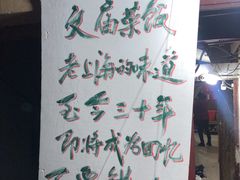 文庙菜饭
老上海的味道
至今三十年
即将成为回忆